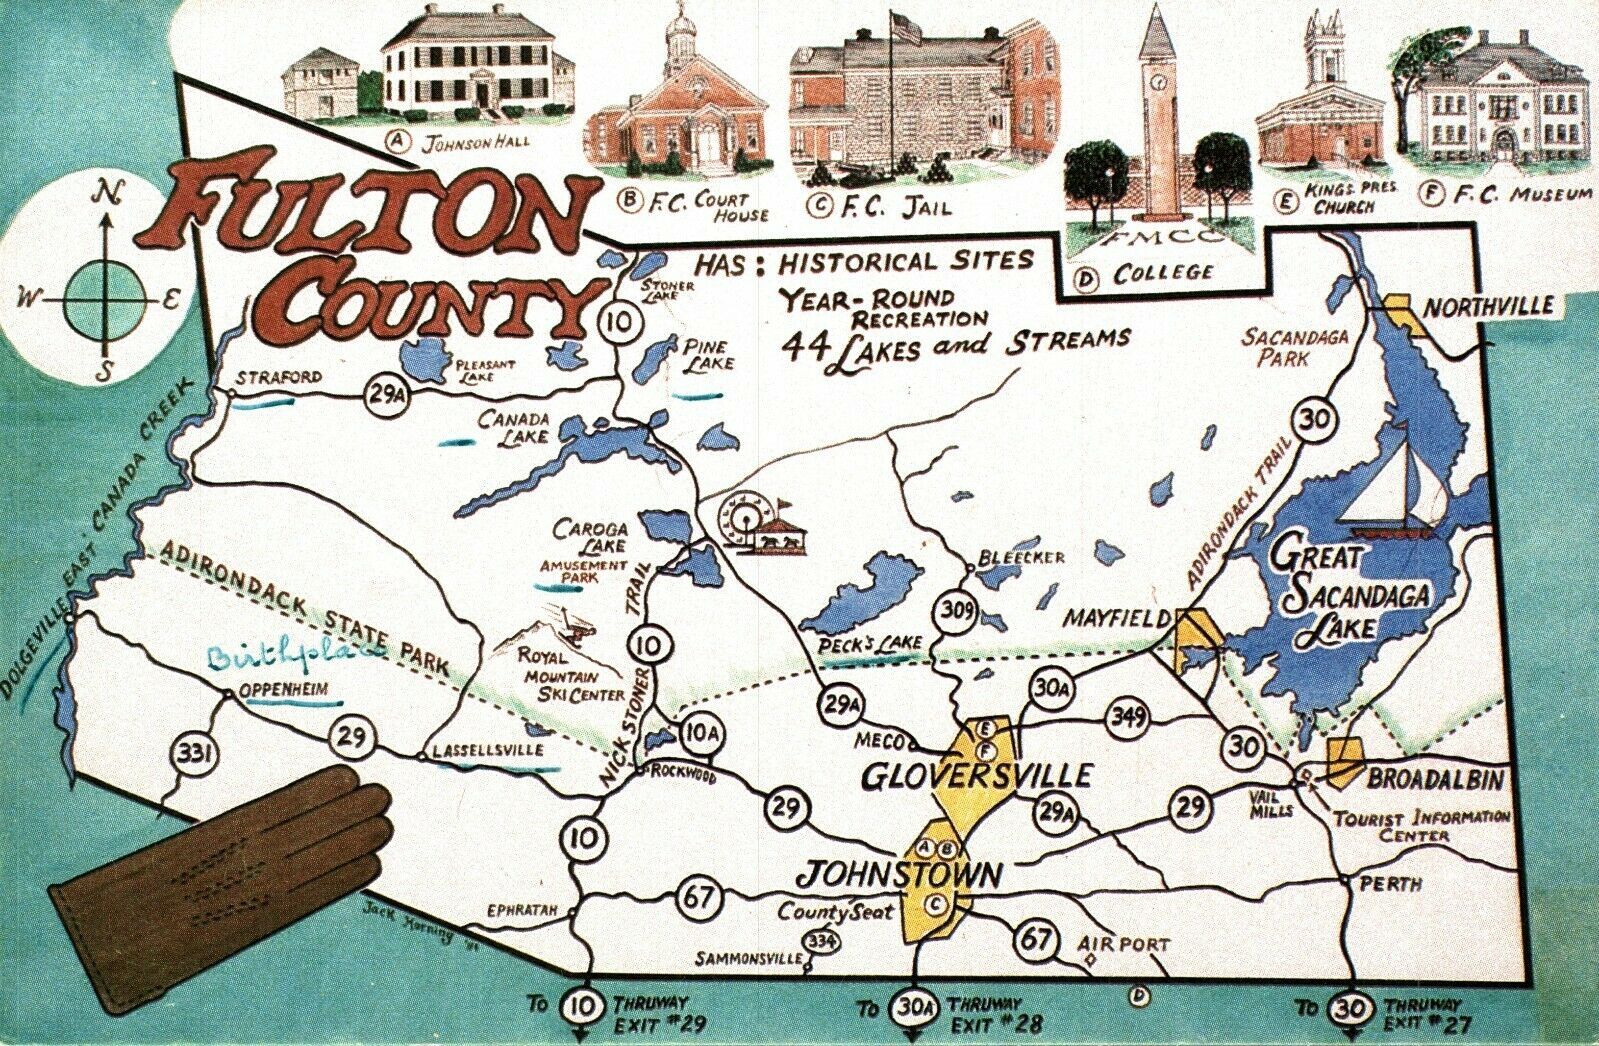 A JOHNSON HALL
B F.C. COURT
HOUSE
C F.C. JAIL
FMCC
D COLLEGE
E KINGS. PRES.
CHURCH
F F.C. MUSEUM
FULTON
COUNTY
N
W E
S
HAS: HISTORICAL SITES
YEAR-ROUND
RECREATION
44 LAKES and STREAMS
STONER
LAKE
10
PLEASANT
LAKE
PINE
LAKE
SACANDAGA
PARK
NORTHVILLE
STRAFORD
29A
CANADA
LAKE
30
ADIRONDACK TRAIL
EAST CANADA CREEK
DOLGEVILLE
CAROGA
LAKE
AMUSEMENT
PARK
BLEECKER
GREAT
SACANDAGA
LAKE
ADIRONDACK STATE PARK
Birthplace
OPPENHEIM
ROYAL
MOUNTAIN
SKI CENTER
NICK STONER TRAIL
10
309
MAYFIELD
PECK'S LAKE
30A
29A
349
331
29
LASSELLSVILLE
10A
ROCKWOOD
MECO
E
F
GLOVERSVILLE
30
BROADALBIN
VAIL
MILLS
TOURIST INFORMATION
CENTER
29
29A
29
10
A B
JOHNSTOWN
County Seat
C
67
EPHRATAH
PERTH
Jack Morning '81
334
SAMMONSVILLE
67
AIRPORT
D
TO 10 THRUWAY
EXIT #29
TO 30A THRUWAY
EXIT #28
TO 30 THRUWAY
EXIT #27